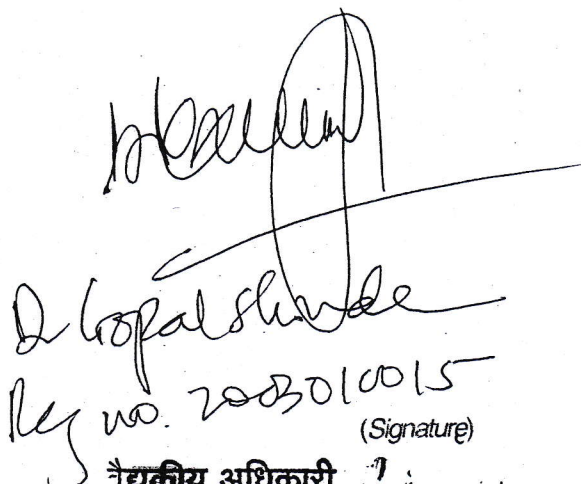 Dr Gopal Shinde
Reg no. 2003010015
(Signature)
वैद्यकीय अधिकारी